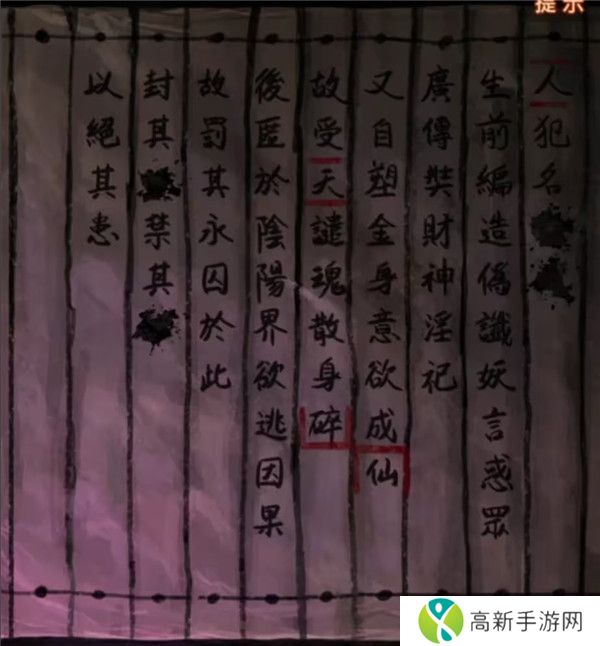 提示
人犯名
生前編造偽讖妖言惑眾
廣傳奘財神淫祀
又自塑金身意欲成仙
故受天譴魂散身碎
後匿於陰陽界欲逃因果
故罰其永囚於此
封其 禁其
以絕其患
高新手游网